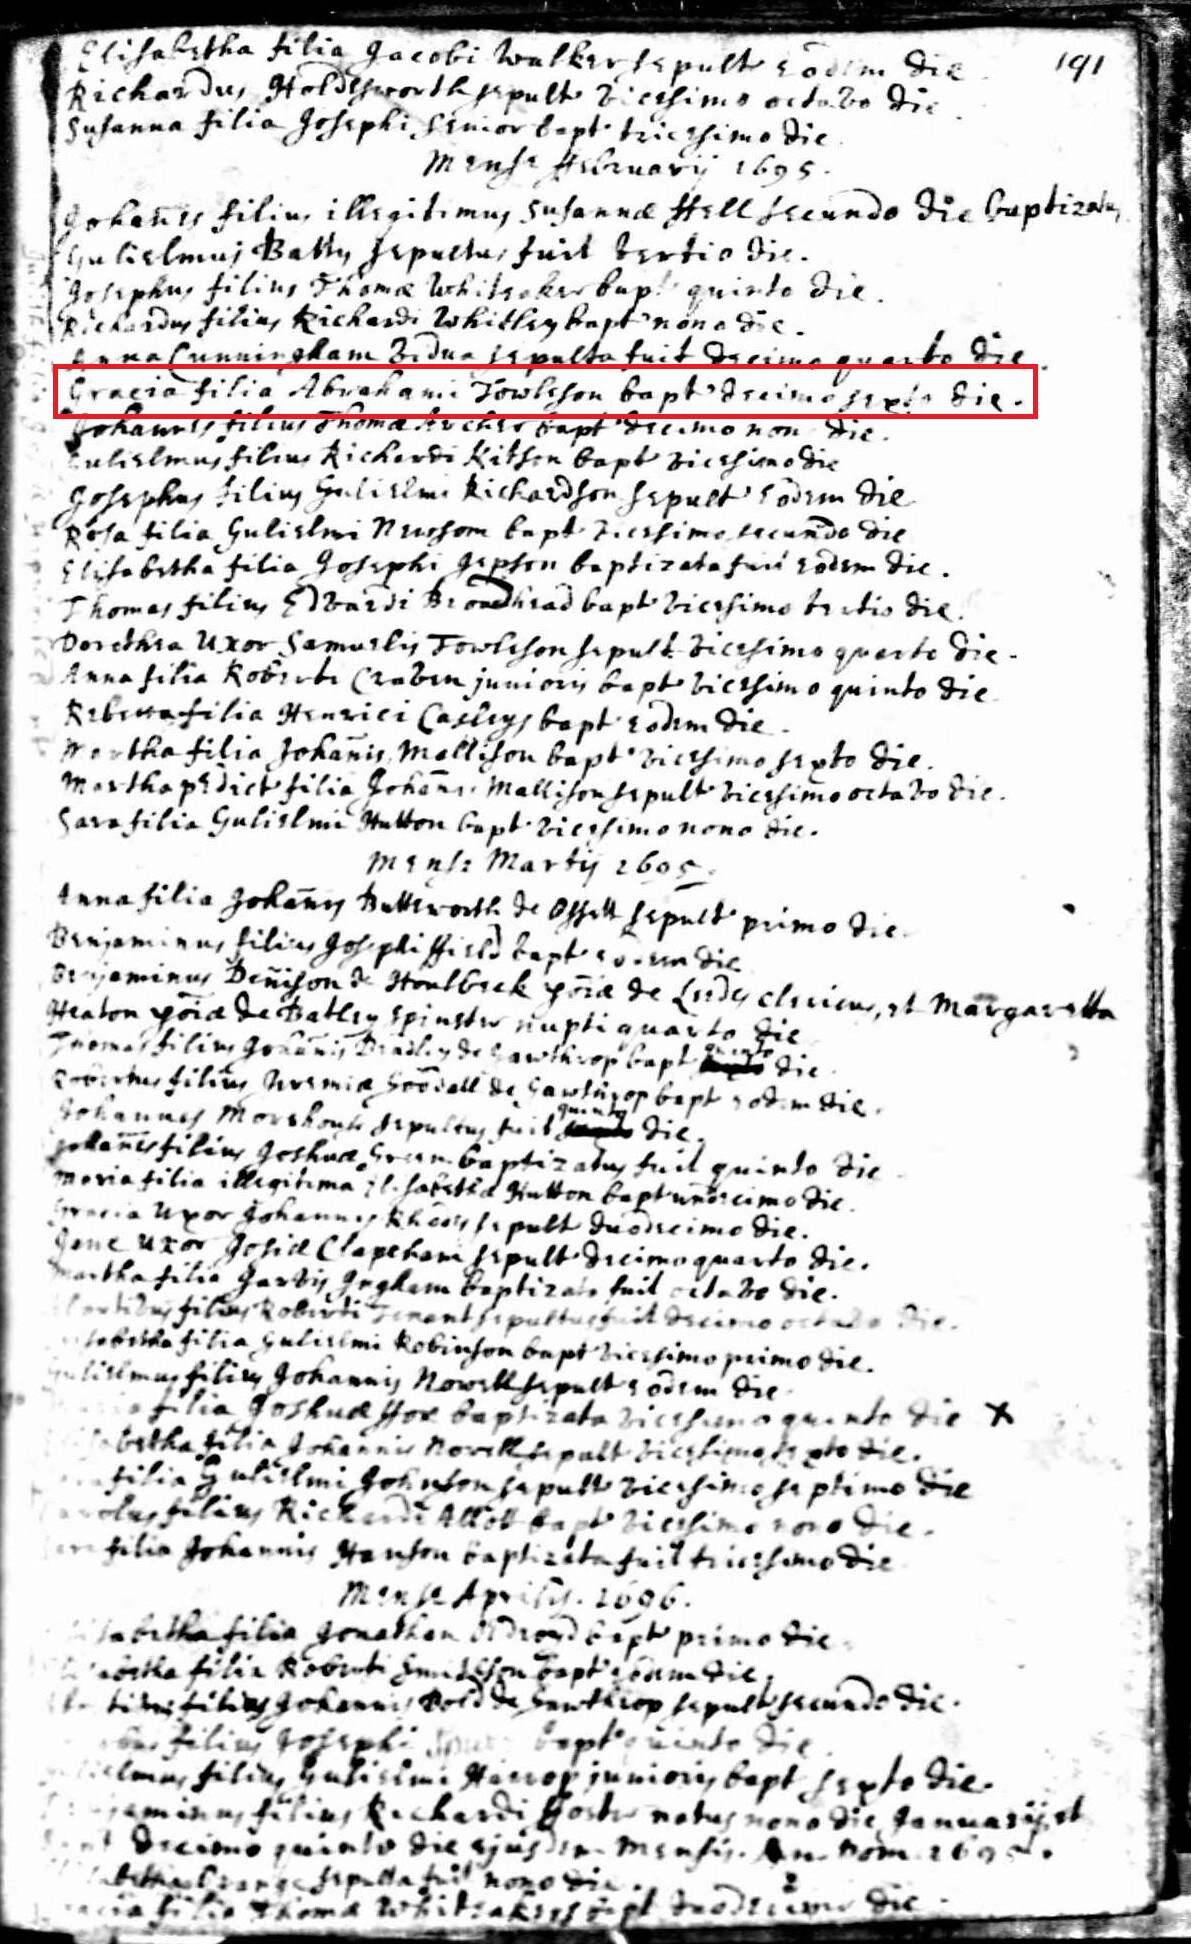 191
Elisabetha filia Jacobi Walker sepult eodem die
Richardus Holdsworth sepult vicesimo octavo die
Susanna filia Josephi Senior bapt tricesimo die
Mense February 1695.
Johanes filius illegitimus Susannæ Hell secundo die baptizatus
Gulielmus Batty sepultus fuit tertio die.
Josephus filius Thomæ Whiteaker bapt quinto die.
Richardus filius Richardi Whitley bapt nono die.
Anna Cunningham vidua sepulta fuit decimo quarto die.
Gracia filia Abrahami Towleson bapt decimo sexto die.
Johannes filius Thomæ Archer bapt decimo non die.
Gulielmus filius Richardi Kitson bapt vicesimo die
Josephus filius Gulielmi Richardson sepult eodem die
Rosa filia Gulielmi Newsom bapt vicesimo secundo die
Elisabetha filia Josephi Jepson baptizata fuit eodem die.
Thomas filius Edvardi Broadhead bapt vicesimo tertio die.
Dorethea Uxor Samuelis Towleson sepult vicesimo quarto die.
Anna filia Roberti Craven junioris bapt vicesimo quinto die
Rebecca filia Henrici Casleys bapt eodem die.
Martha filia Johanis Mallison bapt vicesimo sexto die.
Martha pedict filia Johanis Mallison sepult vicesimo octavo die.
Sara filia Gulielmi Hutton bapt vicesimo nono die.
Mense Martij 1695.
Anna filia Johanis Butterworth de Ossett sepult primo die.
Benjaminus filius Josephi ffield bapt eodem die
Benjaminus Denison de Houlbeck poiæ de Leedes clericus, et Margaretta
Heaton poiæ de Batley Spinster nupti quarto die
Thomas filius Johanis Bradley de Gawthrop bapt quinto die.
Robertus filius Jeremiæ Goodall de Gawthrop bapt eodem die.
Johannes Morehouse sepultus fuit quinto die.
Johanes filius Joshuæ Green baptizatus fuit quinto die
Maria filia illegitima Elisabethæ Hutton bapt undecimo die.
Gracia Uxor Johannis Rhodes sepult duodecimo die.
Jane Uxor Josiæ Clapeham sepult decimo quarto die.
Martha filia Jarvis Ingham baptizata fuit octavo die.
filius Roberti Tenant sepultus fuit decimo octavo die.
Elisabetha filia Gulielmi Robinson bapt vicesimo primo die.
Gulielmus filius Johannis Nowell sepult eodem die.
filia Joshuæ ffox baptizata vicesimo quinto die X
Elisabetha filia Johannis Nowell sepult vicesimo sexto die.
filia Gulielmi Johnson sepult vicesimo septimo die
Carolus filius Richardi Allott bapt vicesimo nono die.
filia Johannis Hanson baptizata fuit tricesimo die
Mense Aprilis. 1696.
Elisabetha filia Jonathan Oldroyd bapt primo die.
Elisabetha filia Roberti Smithson bapt eodem die.
filius Johannis de Gawthrop sepult secundo die.
filius Josephi bapt quinto die
Gulielmus filius Gulielmi Harrop junioris bapt sexto die.
Benjaminus filius Richardi ffoster natus nono die Januarij, et
bapt decimo quinto die ejusdem Mensis. An Dom 1695.
sepulta fuit nono die.
filia Thomæ Whiteakers bapt duodecimo die.